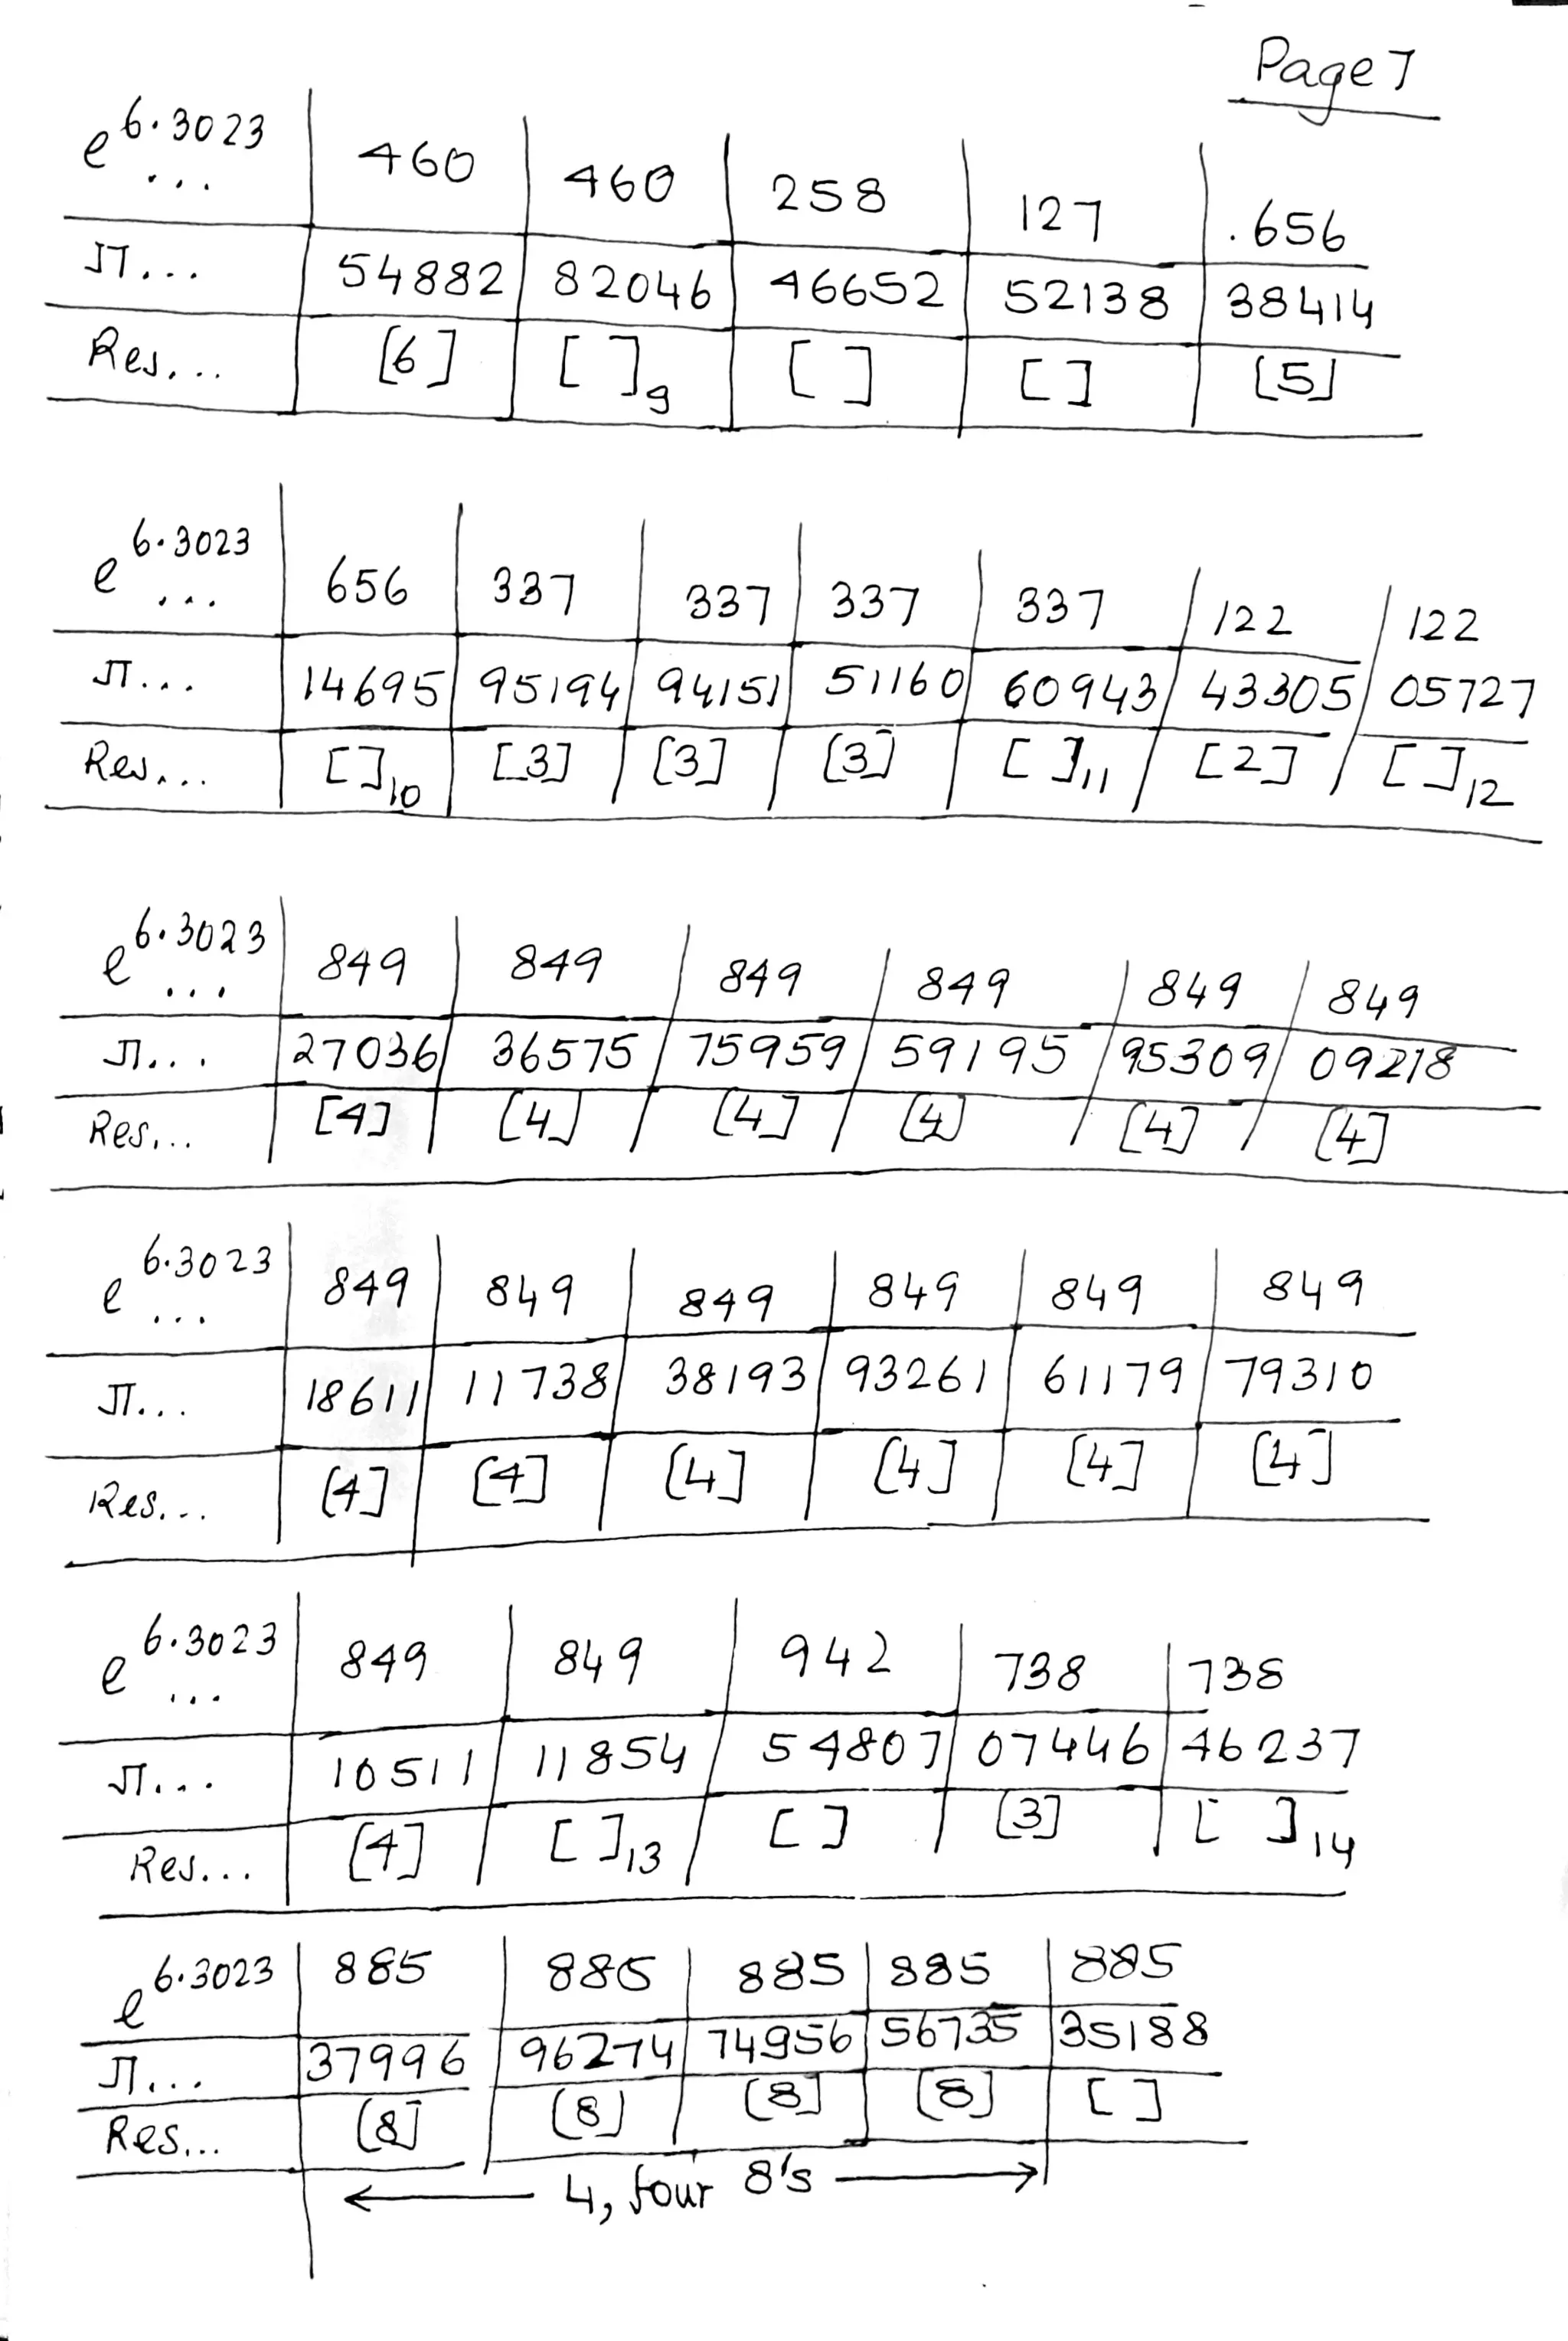 Page 7
e^6.3023 ... 460 460 258 127 .656
π... 54882 82046 46652 52138 38414
Res... [6] [ ]9 [ ] [ ] [5]
e^6.3023 ... 656 337 337 337 337 122 122
π... 14695 95194 94151 51160 60943 43305 05727
Res... [ ]10 [3] [3] [3] [ ]11 [2] [ ]12
e^6.3023 ... 849 849 849 849 849 849
π... 27036 36575 75959 59195 95309 09218
Res... [4] [4] [4] [4] [4] [4]
e^6.3023 ... 849 849 849 849 849 849
π... 18611 11738 38193 93261 61179 79310
Res... [4] [4] [4] [4] [4] [4]
e^6.3023 ... 849 849 942 738 738
π... 10511 11854 54807 07446 46237
Res... [4] [ ]13 [ ] [3] [ ]14
e^6.3023 885 885 885 885 885
π... 37996 96274 74956 56735 35188
Res... [8] [8] [8] [8] [ ]
4, four 8's